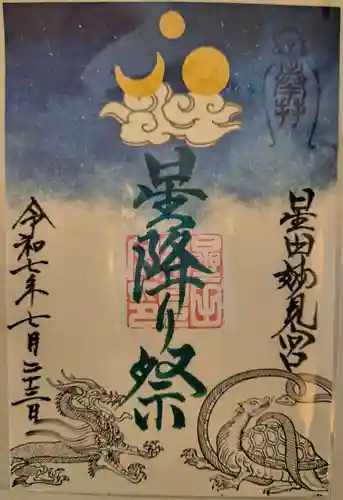 星田妙見宮
星降り祭
令和七年七月二十三日